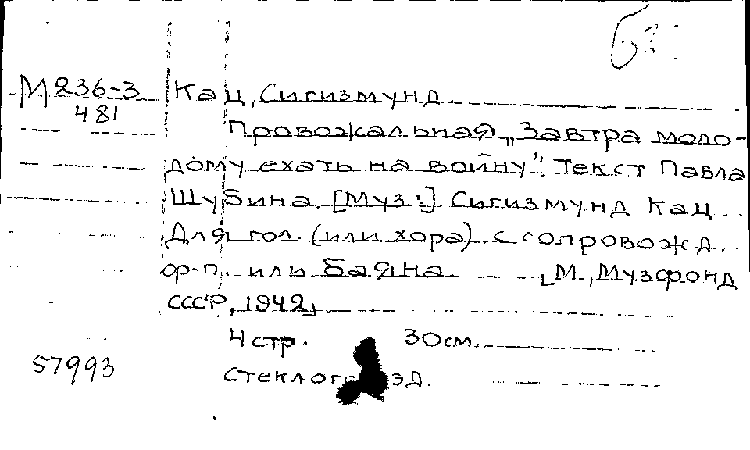 М 236-3
481
Кац, Сигизмунд
Провожальная „Завтра моло-
дому ехать на войну". Текст Павла
Шубина. [Муз:] Сигизмунд Кац.
Для гол. (или хора) с сопровожд.
ф-п. или баяна. [М., Музфонд
СССР, 1942]
4 стр. 30 см.
57993